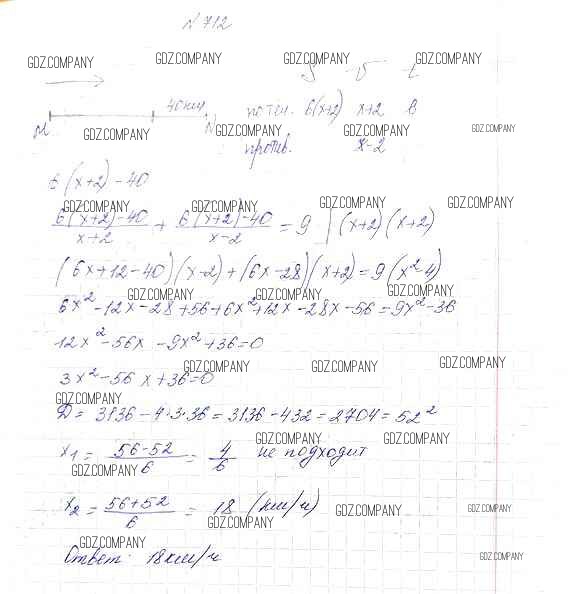 N 712
GDZ.COMPANY GDZ.COMPANY GDZ.COMPANY GDZ.COMPANY
S V t
40 км по теч. 6(x+2) x+2 6
M N
GDZ.COMPANY GDZ.COMPANY GDZ.COMPANY GDZ.COMPANY
против. x-2
6(x+2)-40
GDZ.COMPANY GDZ.COMPANY GDZ.COMPANY GDZ.COMPANY
6(x+2)-40/x+2 + 6(x+2)-40/x-2 = 9 | (x+2)(x+2)
(6x+12-40)(x-2)+(6x-28)(x+2)=9(x²-4)
GDZ.COMPANY GDZ.COMPANY GDZ.COMPANY
6x²-12x-28+56+6x²+12x-28x-56=9x²-36
12x²-56x-9x²+36=0
GDZ.COMPANY GDZ.COMPANY GDZ.COMPANY
3x²-56x+36=0
GDZ.COMPANY
D=3136-4·3·36=3136-432=2704=52²
GDZ.COMPANY GDZ.COMPANY
x₁=56-52/6=4/6 не подходит
GDZ.COMPANY
x₂=56+52/6=18 (км/ч)
GDZ.COMPANY GDZ.COMPANY
GDZ.COMPANY
GDZ.COMPANY
Ответ: 18км/ч
GDZ.COMPANY